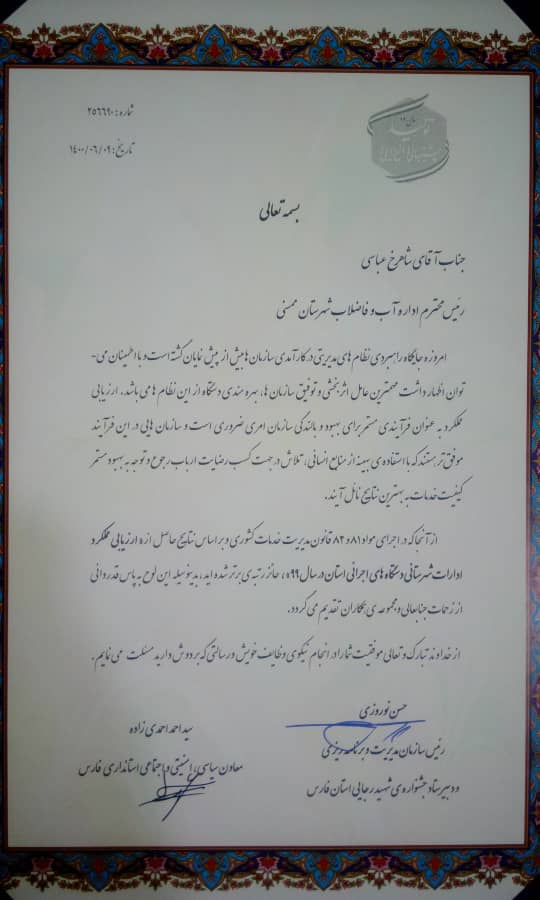 شماره: ۲۵۶۶۹۰
تاریخ: ۱۴۰۰/۰۶/۰۹
بسمه تعالی
جناب آقای شاهرخ عباسی
رئیس محترم اداره آب و فاضلاب شهرستان ممسنی
امروزه جایگاه راهبردی نظام های مدیریتی در کارآمدی سازمان ها بیش از پیش نمایان گشته است و با اطمینان می-
توان اظهار داشت مهمترین عامل اثربخشی و توفیق سازمان ها، بهره مندی دستگاه از این نظام ها می باشد. ارزیابی
عملکرد به عنوان فرآیندی مستمر برای بهبود و بالندگی سازمان امری ضروری است و سازمان هایی در این فرآیند
موفق تر هستند که با استفاده ی بهینه از منابع انسانی، تلاش در جهت کسب رضایت ارباب رجوع و توجه به بهبود مستمر
کیفیت خدمات به بهترین نتایج نائل آیند.
از آنجا که در اجرای مواد ۸۱ و ۸۲ قانون مدیریت خدمات کشوری و بر اساس نتایج حاصل از «ارزیابی عملکرد
ادارات شهرستانی دستگاه های اجرائی استان در سال ۹۹»، حائز رتبه ی برتر شده اید، بدینوسیله این لوح به پاس قدردانی
از زحمات جنابعالی و مجموعه ی همکاران تقدیم می گردد.
از خداوند تبارک و تعالی موفقیت شما را در انجام نیکوی وظایف خویش و رسالتی که بر دوش دارید مسئلت می نمایم.
حسن نوروزی
رئیس سازمان مدیریت و برنامه ریزی
و دبیر ستاد جشنواره ی شهید رجایی استان فارس
سید احمد احمدی زاده
معاون سیاسی، امنیتی و اجتماعی استانداری فارس